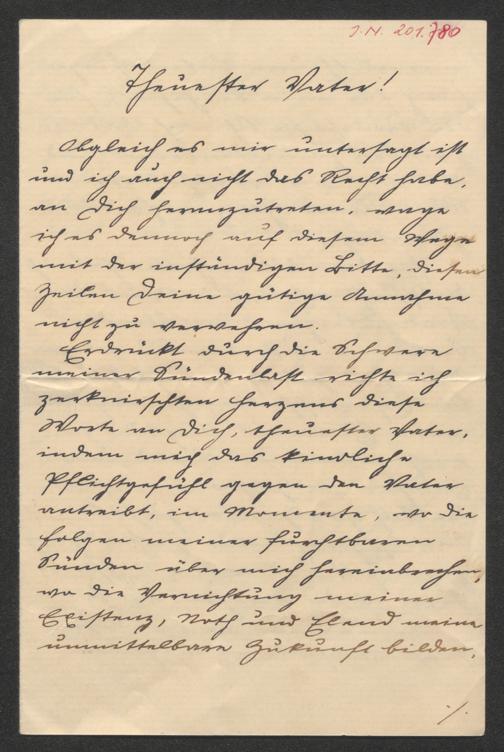 J.N. 201.780
Theuerster Vater!
Obgleich es mir untersagt ist
und ich auch nicht das Recht habe,
an Dich heranzutreten, wage
ich es dennoch auf diesem Wege
mit der inständigen Bitte, diesen
Zeilen Deine gütige Annahme
nicht zu verwehren.
Erdrückt durch die Schwere
meiner Sündenlast richte ich
zerknirschten Herzens diese
Worte an Dich, theuerster Vater,
indem mich das kindliche
Pflichtgefühl gegen den Vater
antreibt, im Momente, wo die
Folgen meiner furchtbaren
Sünden über mich hereinbrechen,
wo die Vernichtung meiner
Existenz, Noth und Elend meine
unmittelbare Zukunft bilden,
./.